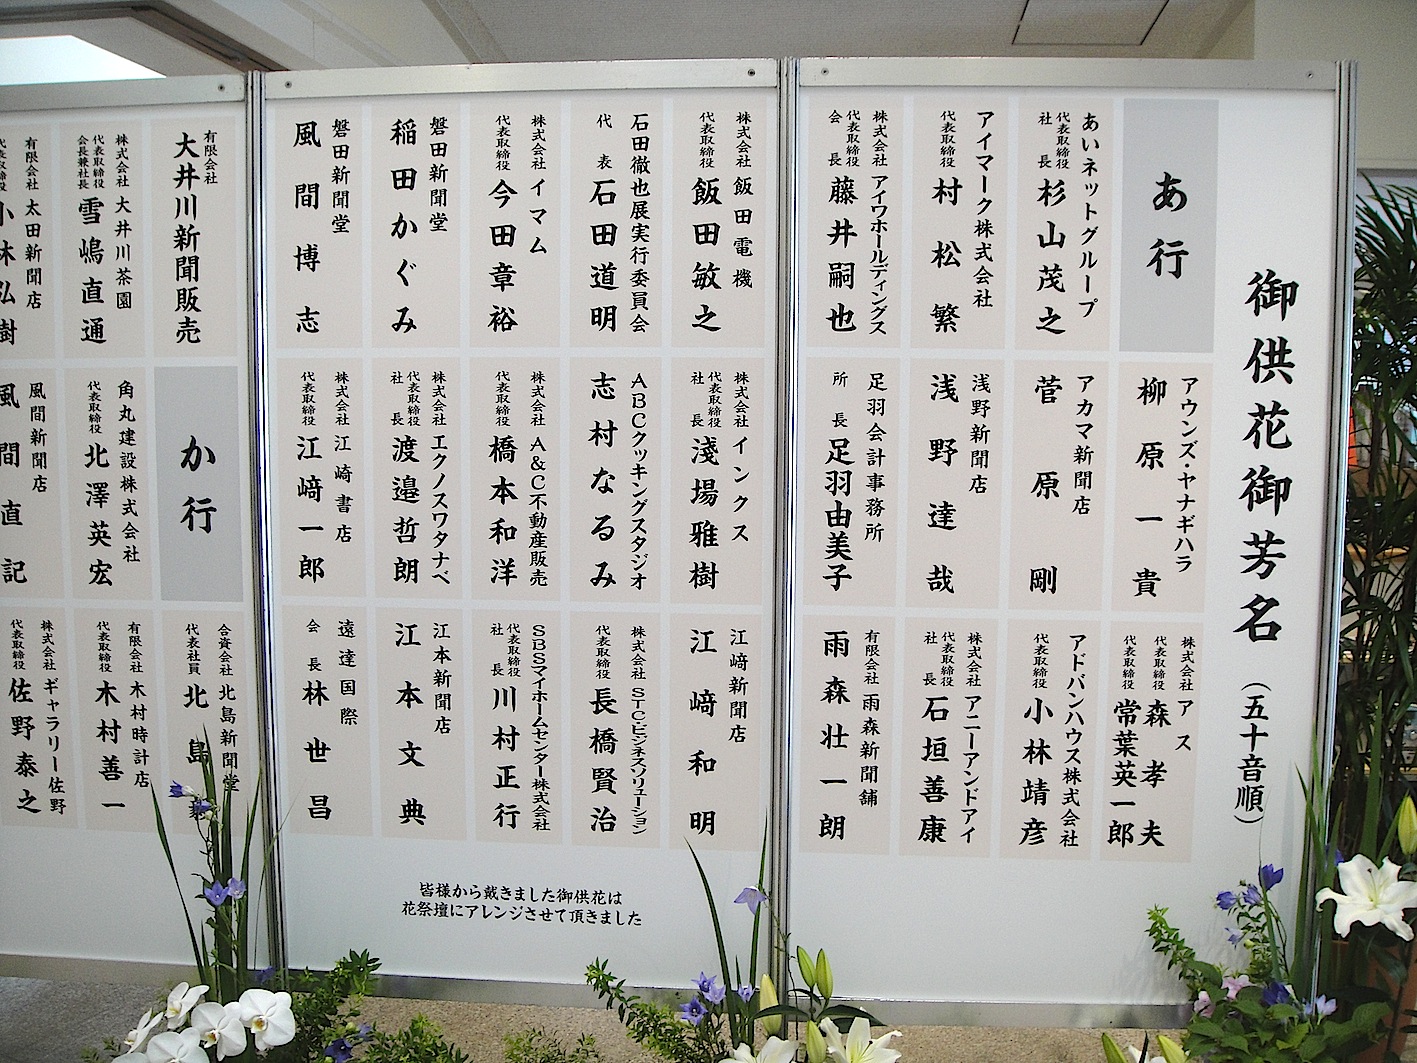 御供花御芳名（五十音順）
あ行
アウンズ・ヤナギハラ
柳原一貴
株式会社アス
代表取締役 森孝夫
代表取締役 常葉英一郎
あいネットグループ
代表取締役社長 杉山茂之
アカマ新聞店
菅原剛
アドバンハウス株式会社
代表取締役 小林靖彦
アイマーク株式会社
代表取締役 村松繁
浅野新聞店
浅野達哉
株式会社アニーアンドアイ
代表取締役社長 石垣善康
株式会社アイワホールディングス
代表取締役会長 藤井嗣也
足羽会計事務所
所長 足羽由美子
有限会社雨森新聞舗
雨森壮一朗
株式会社飯田電機
代表取締役 飯田敏之
株式会社インクス
代表取締役社長 淺場雅樹
江﨑新聞店
江﨑和明
石田徹也展実行委員会
代表 石田道明
ABCクッキングスタジオ
志村なるみ
株式会社STC・ビジネスソリューション
代表取締役 長橋賢治
株式会社イマム
代表取締役 今田章裕
株式会社A&C不動産販売
代表取締役 橋本和洋
SBSマイホームセンター株式会社
代表取締役社長 川村正行
磐田新聞堂
稲田かぐみ
株式会社エクノスワタナベ
代表取締役社長 渡邉哲朗
江本新聞店
江本文典
磐田新聞堂
風間博志
株式会社江崎書店
代表取締役 江﨑一郎
遠達国際
会長 林世昌
皆様から戴きました御供花は
花祭壇にアレンジさせて頂きました
有限会社
大井川新聞販売
か行
合資会社北島新聞堂
代表社員 北島
株式会社大井川茶園
代表取締役会長兼社長 雪嶋直通
角丸建設株式会社
代表取締役 北澤英宏
有限会社木村時計店
代表取締役 木村善一
有限会社太田新聞店
代表取締役 小林弘樹
風間新聞店
風間直記
株式会社ギャラリー佐野
代表取締役 佐野泰之